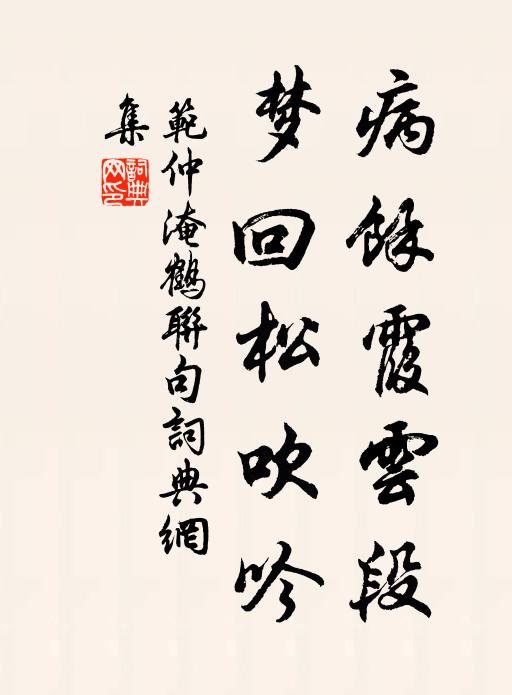 病馀霞雲段
梦回松吹吟
範仲淹鶴聯句詞典網
集
詞典網印